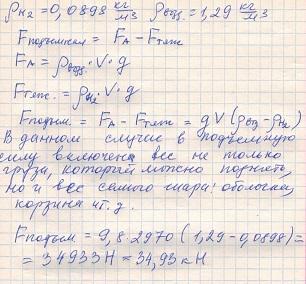 ρн2 = 0,0898 кг/м3 ρвозд. = 1,29 кг/м3
Fподъемная = FA − Fтяж
FA = ρвозд. · V · g
Fтяж. = ρн2 · V · g
Fподъем. = FA − Fтяж = gV (ρвзд − ρн2)
В данном случае в подъемную
силу включена вес не только
груза, который можно поднять,
но и вес самого шара: оболочка,
корзина и т. д.
Fподъем = 9,8 · 2970 (1,29 − 0,0898) =
= 34933 Н = 34,93 кН